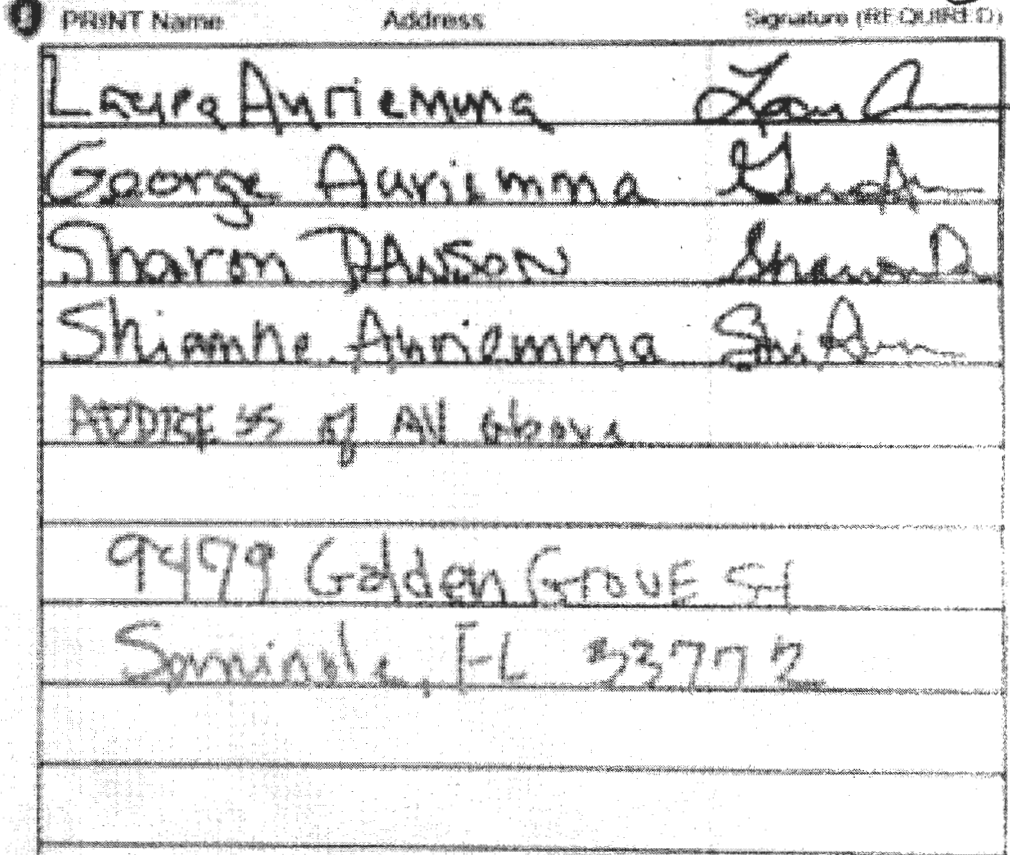 PRINT Name Address Signature (REQUIRED)
Laura Auriemma
George Auriemma
Sharon DAWSON Sharon D
Shianne Auriemma
ADDRESS of All above
9479 Golden GrovE St
Seminole, FL 33772